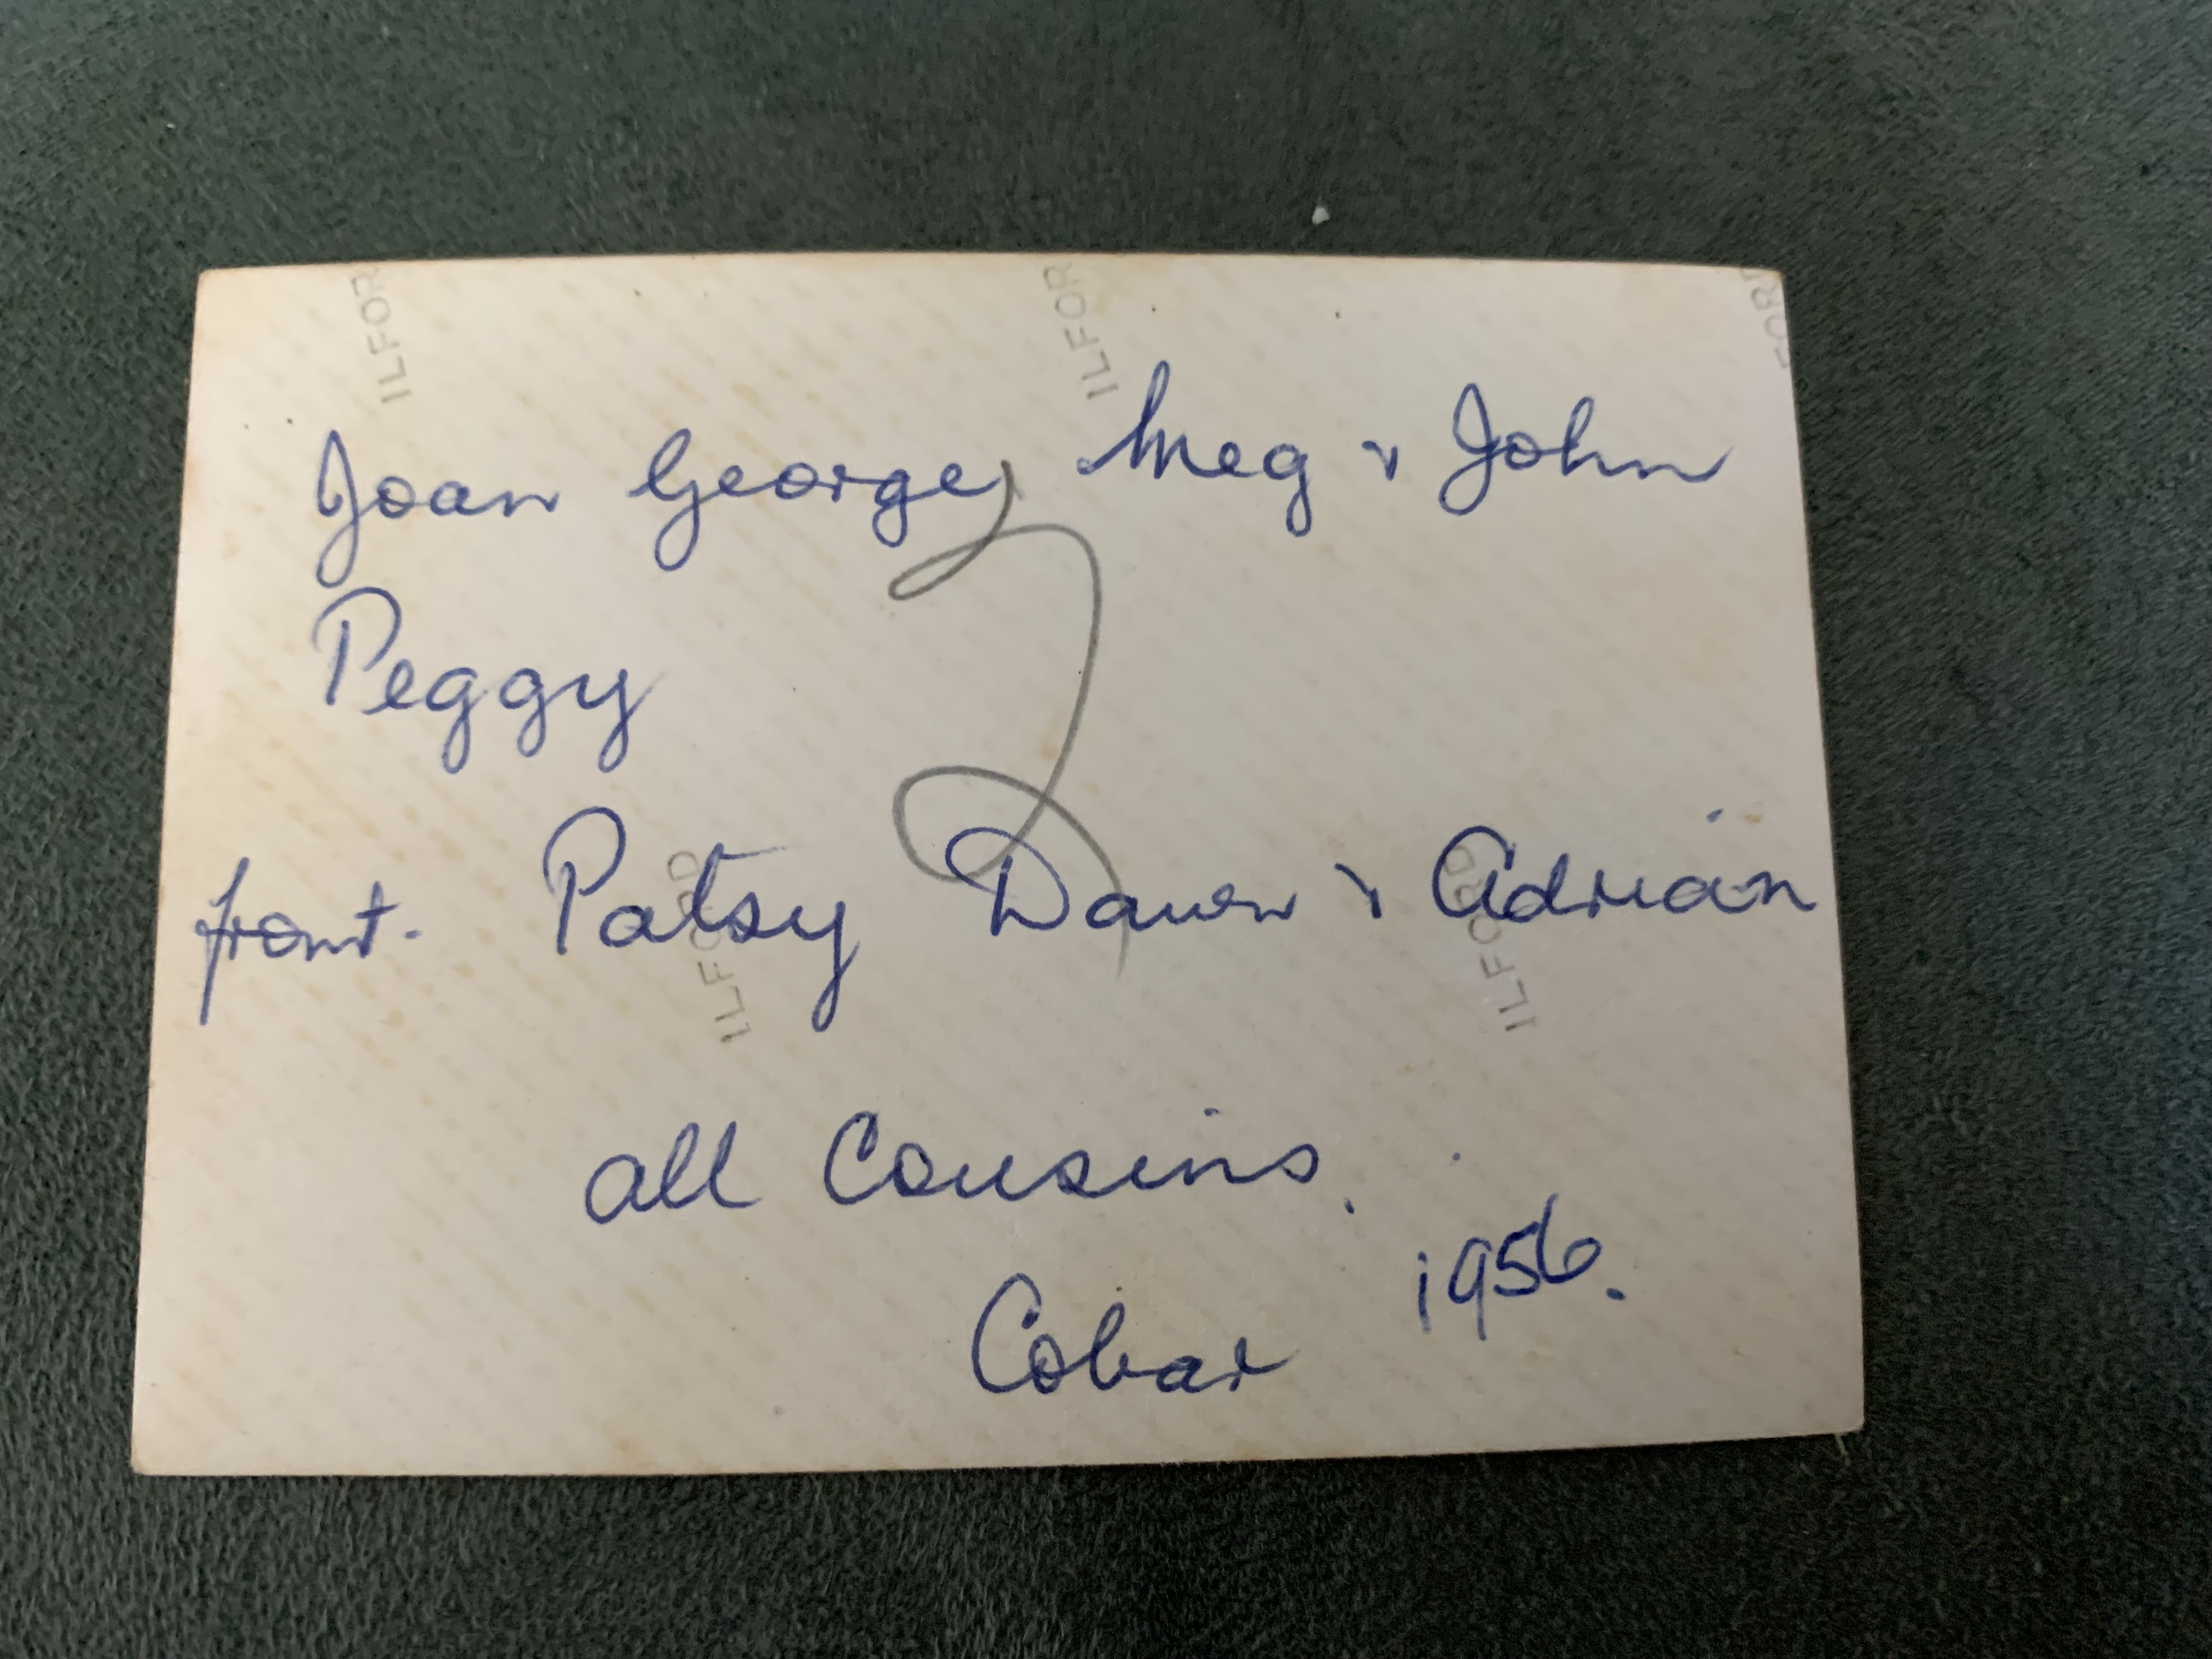 ILFOR ILFOR FORD
Joan George, Meg & John
Peggy
front. Patsy Dawn & Adrian
ILFORD ILFORD
all Cousins.
1956.
Cobar